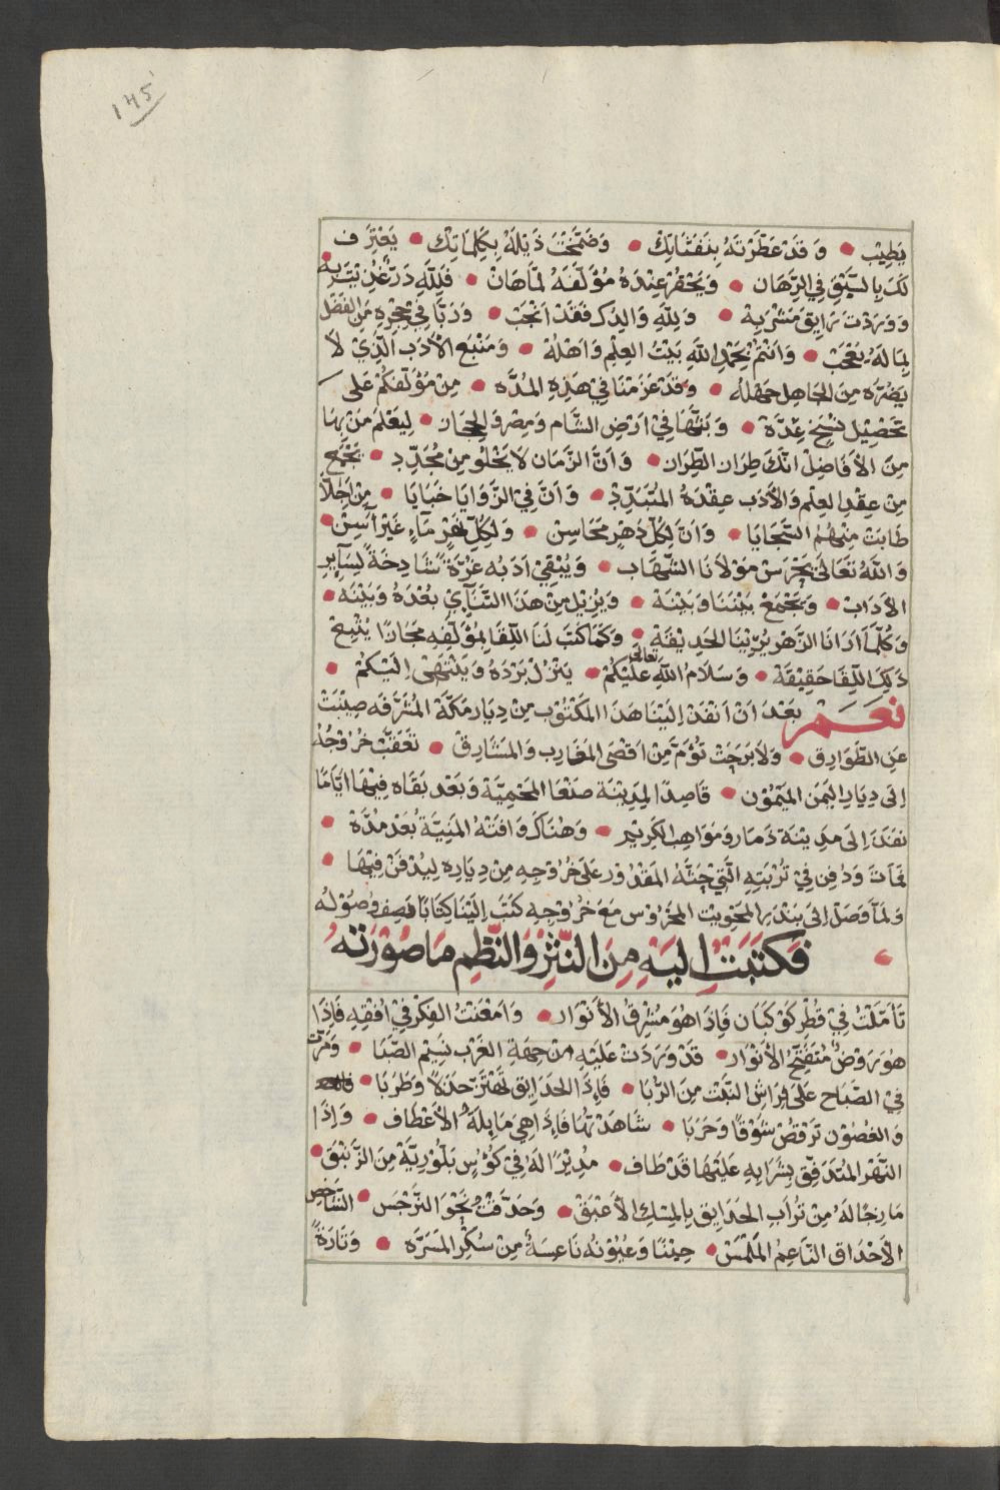 ١٣٥
يطيب • وقد عطرته بنفثاتك • وضمخت ذيله بكلماتك • يعترف
لك بالسبق في الرهان • ويحقر عنده مؤلفه لما هان • فلله در غذيت به
ووردت رايق مشربه • ولله والدك فقد انجب • وربا في حجره من الفضل
لما له يعجب • وانتم بحمد الله بيت العلم واهله • ومنبع الأدب الذي لا
يضره من الجاهل جهله • وقد عزمنا في هذه المده • من مؤلفكم على
تحصيل نسخ عدة • وبثها في ارض الشام ومصر والحجاز • ليعلم من بها
من الأفاضل انك طراز الطراز • وان الزمان لا يخلو من مجدد • يجمع
من عقد العلم والأدب عقده المتبدد • وان في الزوايا خبايا • من اجلا
طابت منهم السجايا • وان لكل دهر محاسن • ولكل نهر مآء غير آسن •
والله تعالى يحرس مولانا الشهاب • ويبقي ادبه غرة شادخة لسآير
الآداب • ويجمع بيننا وبينه • ويزيل من هذا التنآي بعده وبينه •
وكلما ارانا الزهر يزينا الحديقة • وكما كتب لنا اللقا بمؤلفه مجازا ينسخ
ذلك اللقا حقيقة • وسلام الله تعالى عليكم • ينزل برده وينتهى اليكم •
نعم بعد ان انفذ الينا هذا المكتوب من ديار مكة المشرفه صينت
عن الطوارق • ولا برحت تؤم من اقصى المغارب والمشارق • تعقب خروجه
الى ديار اليمن الميمون • قاصدا لمدينة صنعا المحمية وبعد بقاه فيها اياما
نفذ الى مدينة ذمار ومواهب الكريم • وهناك وافته المنية بعد مدة •
فمات ودفن في تربته التي حثه المقدور على خروجه من دياره ليدفن فيها •
ولمآ وصل الى بندر المحروس مع خروجه كتب الينا كتابا فصف وصوله
فكتبت اليه من النثر والنظم ما صورته
تأملت في قطر كوكبان فاذا هو مشرق الأنوار • وامعنت الفكر في افقه فاذا
هو روض متفتح الأنوار • قد وردت عليه من جهة الغرب نسيم الصبا • ومرت
في الصباح على فراش النبت من الربا • فإذا الحدايق تهتز جذلا وطربا •
والغصون ترقص شوقا وحربا • شاهدتها فإذا هي مايلة الأعطاف • وإذا
النهر المتدفق بشرابه عليها قد طاف • مديرا له في كؤس بلورية من الزيبق •
مازجا له من تراب الحدايق بالمسك الأعبق • وحدقت نحو النرجس • الشاخص
الأحداق الناعم الملمس • حينا وعيونه ناعسة من سكر المسره • وتارة